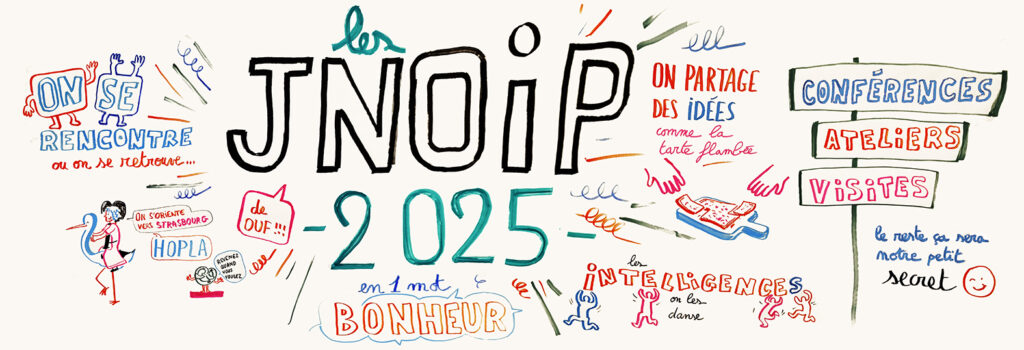 les
JNOiP
-2 025-
en 1 mot
BONHEUR
ON SE
RENCONTRE
ou on se retrouve...
ON S'ORIENTE
VERS STRASBOURG
HOPLA
REVENEZ
QUAND
VOUS
VOULEZ
de
OUF!!!
ON PARTAGE
DES iDÉES
comme la
tarte flambée
les
iNTELLIGENCES
on les
danse
CONFÉRENCES
ATELiERS
VISITES
le reste ça sera
notre petit
secret